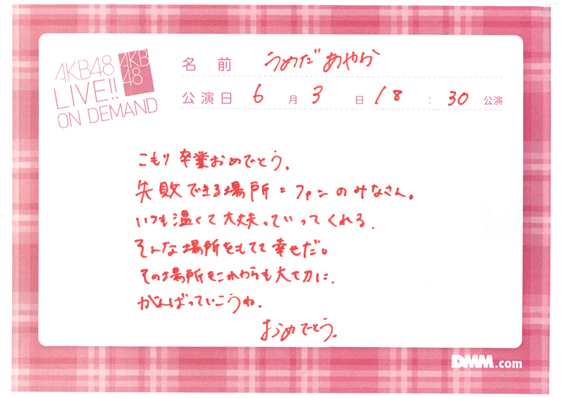 AKB48
LIVE!!
ON DEMAND
AKB
48
名前 うめだあやか
公演日 6月3日 18:30公演
こもり卒業おめでとう。
失敗できる場所=ファンのみなさん。
いつも温くて大丈夫っていってくれる。
そんな場所をもてて幸せだ。
その場所をこれからも大切に。
がんばっていこうね。
おめでとう。
DMM.com